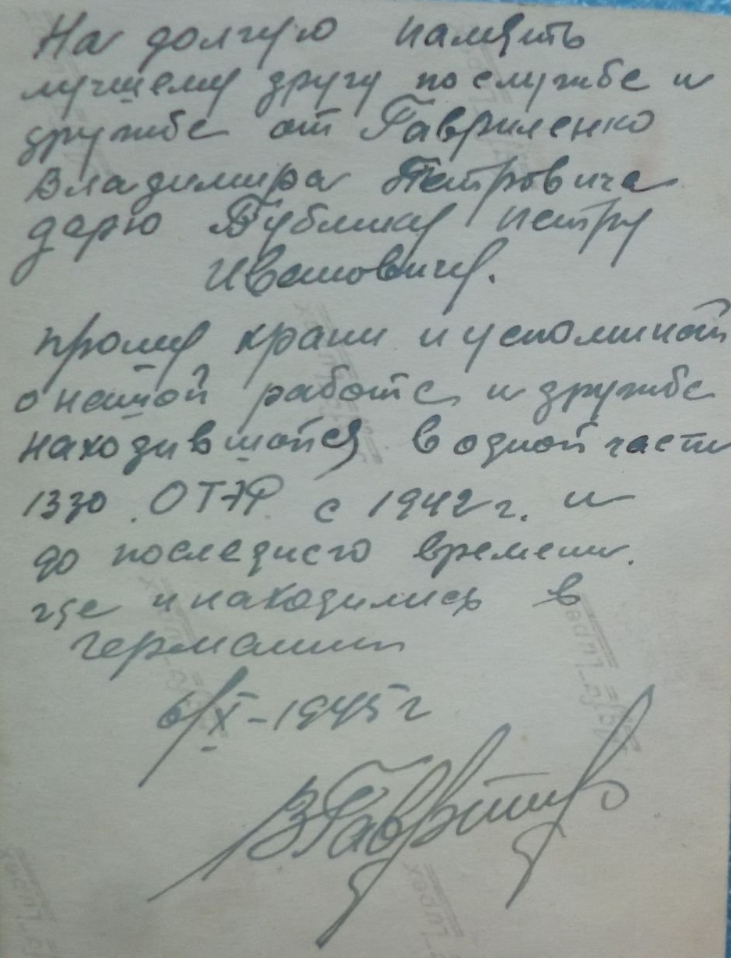 На долгую память
лучшему другу по службе и
дружбе от Гавриленко
Владимира Петровича
дарю Бублику Петру
Ивановичу.
прошу храни и успоминай
о нашой работе и дружбе
находившойся в одной части
1330 ОТЭР с 1942 г. и
до последнего времени.
где и находились в
германии
6/X-1945 г